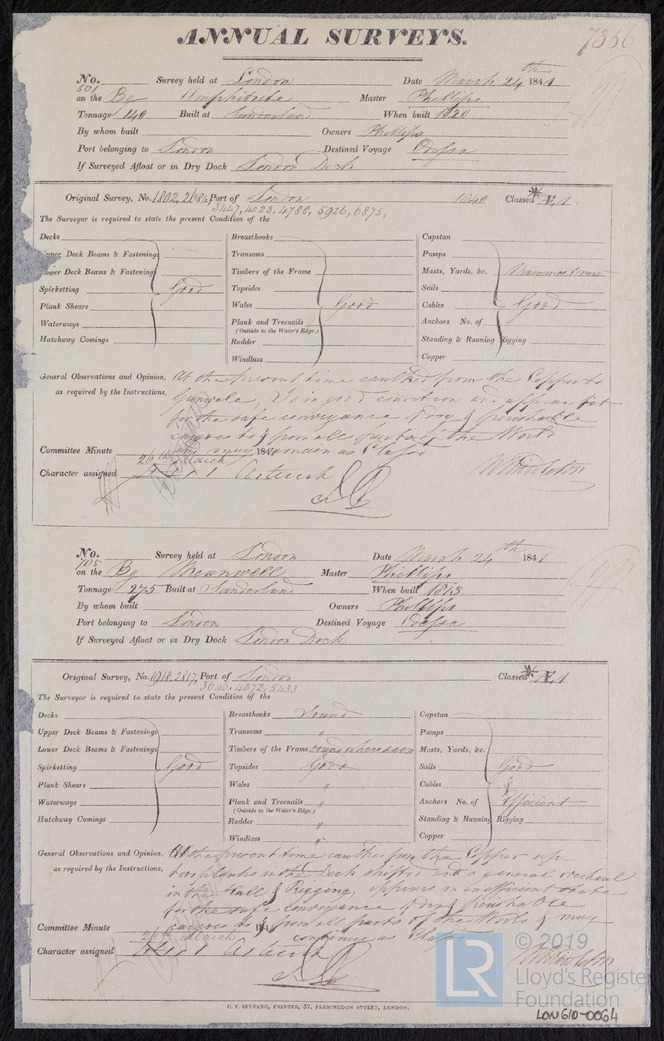 ANNUAL SURVEYS. 7356
No. 501 Survey held at London Date March 24th 1841
on the Bg Amphitrite Master Phillips
Tonnage 140 Built at Sunderland When built 1820
By whom built Owners Phillips
Port belonging to London Destined Voyage Odessa
If Surveyed Afloat or in Dry Dock London Dock
Original Survey, No. 1802, Port of London 1840 Classed Æ 1
3447, 4023, 4788, 5926, 6875,
The Surveyor is required to state the present Condition of the
Decks Breasthooks Capstan
Upper Deck Beams & Fastenings Transoms Pumps
Lower Deck Beams & Fastenings Timbers of the Frame Masts, Yards, &c.
Spirketting Good Topsides Sails
Plank Shears Wales Good Cables Good
Waterways Plank and Treenails Anchors No. of
(Outside to the Water's Edge.)
Hatchway Comings Rudder Standing & Running Rigging
Windlass Copper
General Observations and Opinion, At the present time caulked from the Copper to
as required by the Instructions, Gunwale, is in good condition and appears fit
for the safe conveyance of dry & perishable
cargoes to & from all parts of the World
and may remain as Classed
Committee Minute 26th March 184
Character assigned Æ 1
No. 705 Survey held at London Date March 24th 1841
on the Bg Meanwell Master Phillips
Tonnage 275 Built at Sunderland When built 1815
By whom built Owners Phillips
Port belonging to London Destined Voyage Odessa
If Surveyed Afloat or in Dry Dock London Dock
Original Survey, No. 1918, 2817, Port of London Classed Æ 1
3646, 4372, 5433
The Surveyor is required to state the present Condition of the
Decks Breasthooks Sound Capstan
Upper Deck Beams & Fastenings Transoms " Pumps
Lower Deck Beams & Fastenings Timbers of the Frame sound where seen Masts, Yards, &c.
Spirketting Good Topsides Good Sails Good
Plank Shears Wales " Cables &
Waterways Plank and Treenails " Anchors No. of Efficient
(Outside to the Water's Edge.)
Hatchway Comings Rudder " Standing & Running Rigging
Windlass " Copper
General Observations and Opinion, At the present time caulked from the Copper up
as required by the Instructions, two planks in the Deck shifted and a general overhaul
in the Hull & Rigging, appears in an efficient state
for the safe conveyance of dry & perishable
cargoes to & from all parts of the World & may
continue as Classed
Committee Minute March 184
Character assigned Æ 1
C. F. SEYFANG, PRINTER, 57, FARRINGDON STREET, LONDON.
© 2019
LR
Lloyd's Register
Foundation
LON610-0064